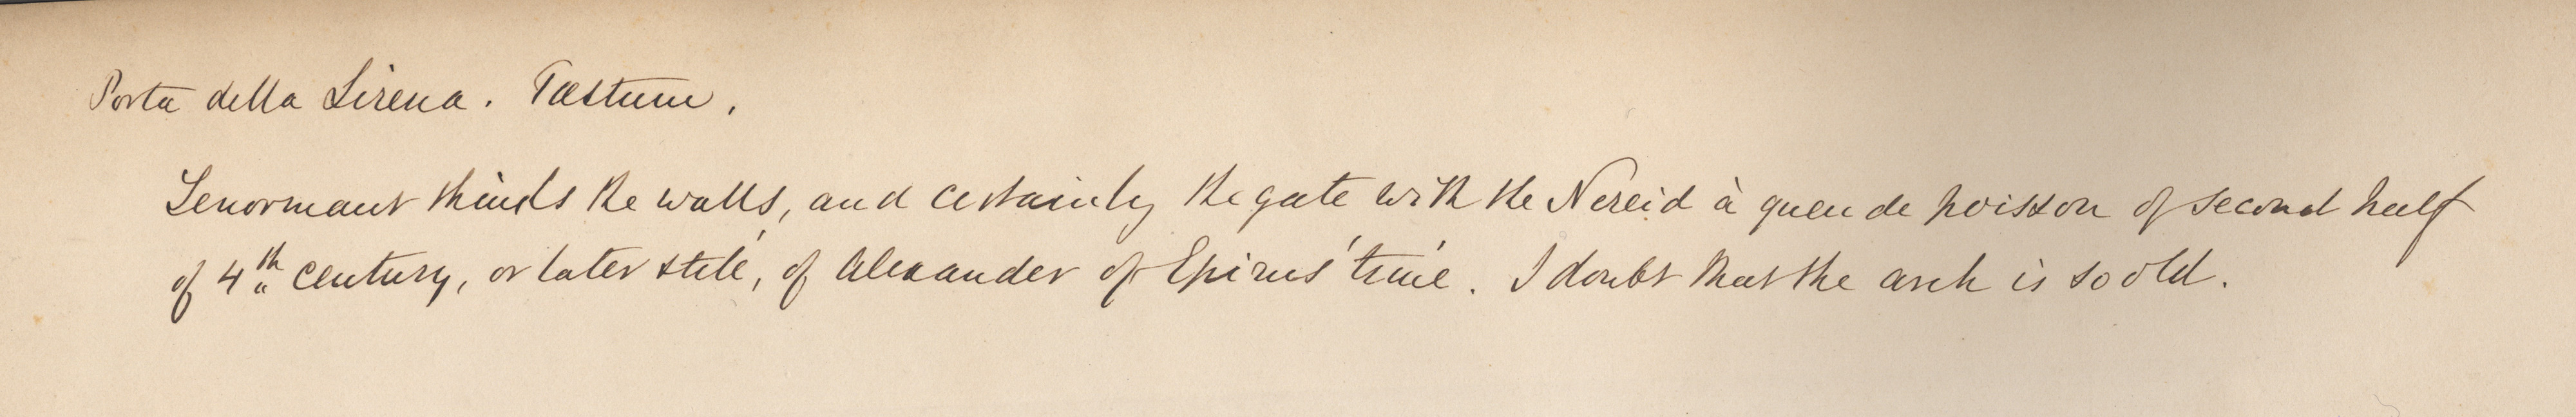 Porta della Sirena. Pæstum.
Lenormant thinks the walls, and certainly the gate with the Nereid à queu de poisson of second half
of 4th century, or later still, of Alexander of Epirus' time. I doubt that the arch is so old.